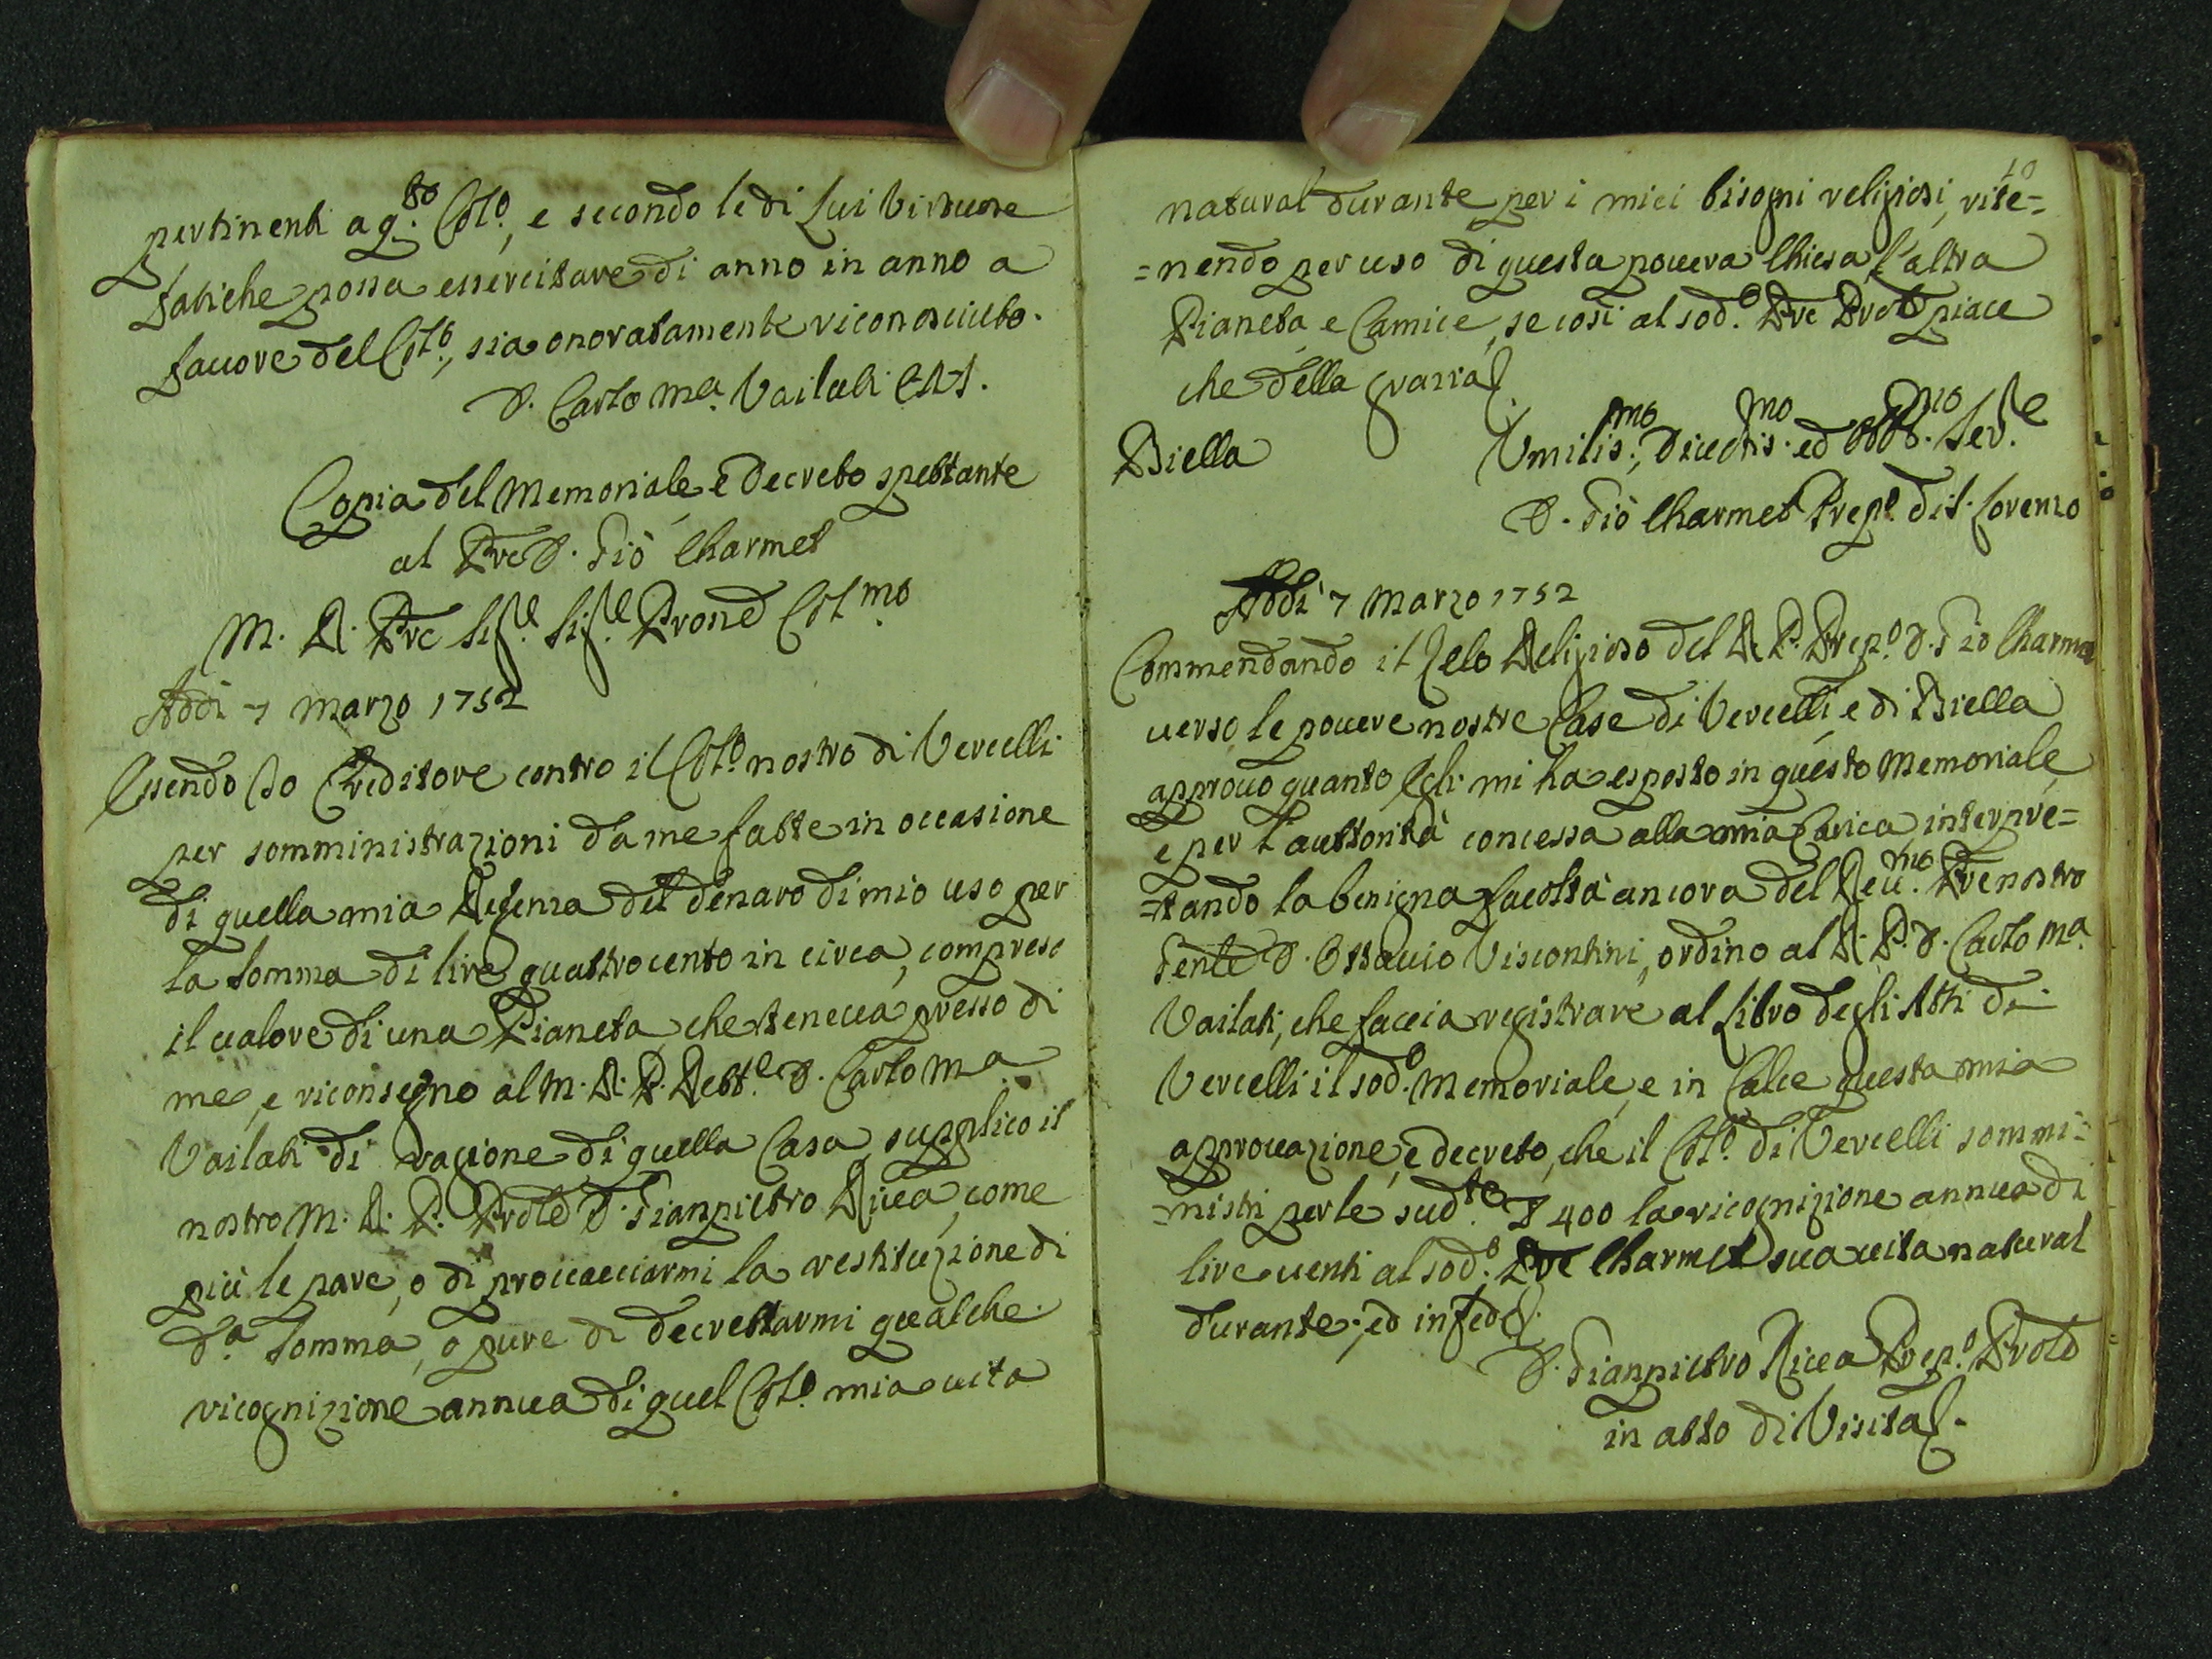 pertinenti a q.to Coll.o, e secondo le di Lui Virtuose
fatiche possa essercitare di anno in anno a
favore del Coll.o, sia onoratamente riconosciuto.
D. Carlo Ma. Vailati C.R.S.
Copia del Memoriale, e Decreto spettante
al Pre D. Pio Charmet
M. R. Pre Sig.e Sig.e Prone Col.mo
Addì 7 Marzo 1752
Essendo Io Creditore contro il Coll.o nostro di Vercelli
per somministrazioni da me fatte in occasione
di quella mia Regenza del denaro di mio uso per
la somma di lire quattrocento in circa, compreso
il valore di una Pianeta, che teneva presso di
me, e riconsegno al M. R. P. Rett.e D. Carlo Ma
Vailati di ragione di quella Casa, supplico il
nostro M. R. P. Prole D. Gianpietro Riva, come
più le pare, o di procacciarmi la restituzione di
d.a somma, o pure di decrettarmi qualche
ricognizione annua di quel Coll.o mia vita
10
natural durante per i miei bisogni religiosi, rite=
=nendo per uso di questa povera Chiesa l'altra
Pianeta, e Camice, se così al sod.o Pre Prole piace
che della grazia
Biella Umilis.mo, Divotis.mo ed Obb.mo Ser.e
D. Pio Charmet Prep.o di S. Lorenzo
Addì 7 Marzo 1752
Commendando il Zelo Religioso del R. P. Prep.o D. Pio Charmet
verso le povere nostre Case di Vercelli, e di Biella
approvo quanto Egli mi ha esposto in questo Memoriale,
e per l'auttorità concessa alla mia Carica interpre=
=tando la benigna facoltà ancora del Rev.mo Pre nostro
Genle D. Ottavio Viscontini, ordino al R. P. D. Carlo Ma.
Vailati, che faccia registrare al Libro degli Atti di
Vercelli il sod.o Memoriale, e in Calce questa mia
approvazione, e decreto, che il Coll.o di Vercelli sommi=
=nistri per le sud.te 400 la ricognizione annua di
lire venti al sod.o Pre Charmet sua vita natural
durante; ed in fede
D. Gianpietro Riva Prep.o Prole
in atto di Visita